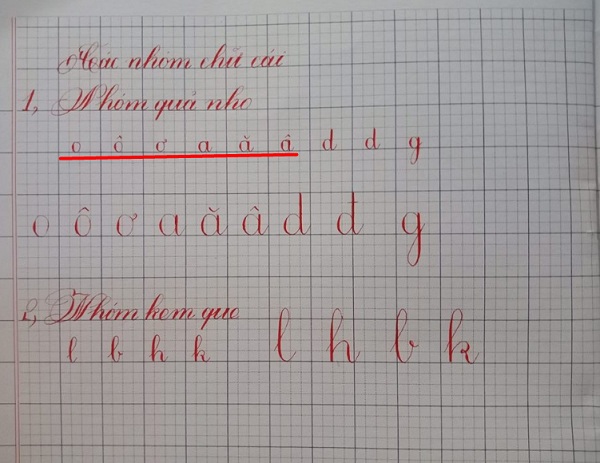 Các nhóm chữ cái
1, Nhóm quả nho
o ô ơ a ă â d d g
o ô ơ a ă â d đ g
2, Nhóm kem que
l b h k l h b k